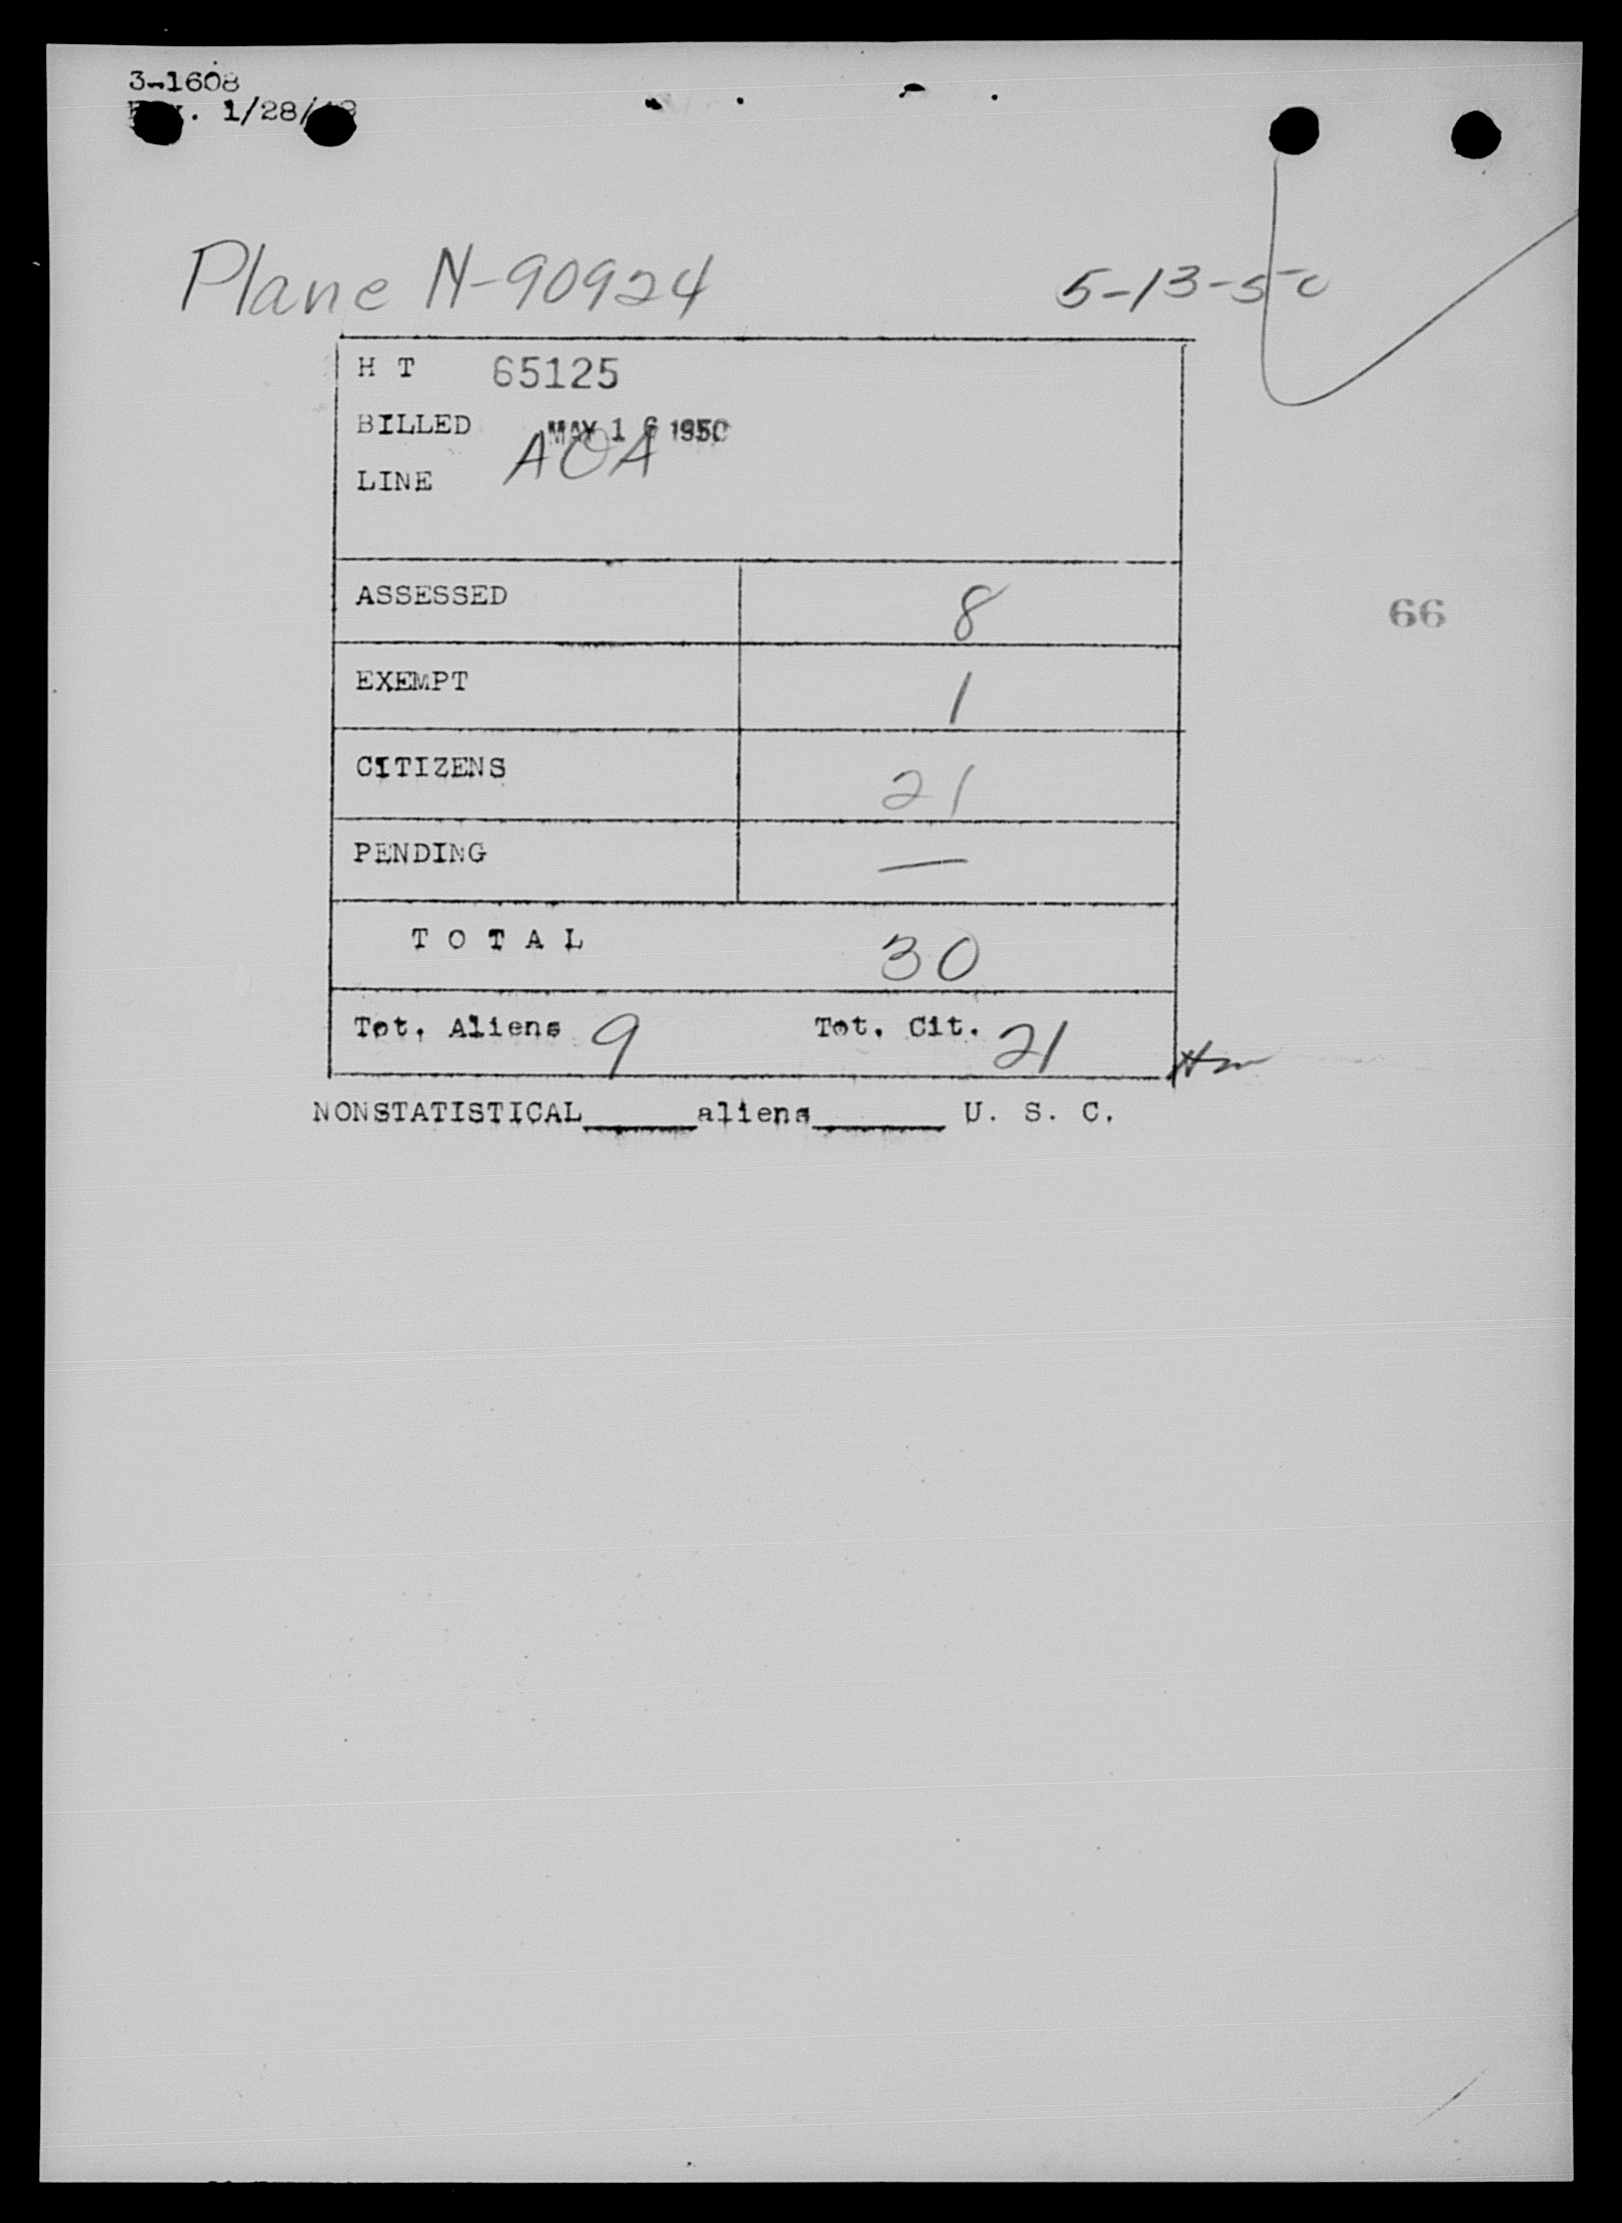 3-1608
1/28/
Plane N-90924 5-13-50
H T 65125
BILLED MAY 16 1950
LINE AOA
ASSESSED 8
66
EXEMPT 1
CITIZENS 21
PENDING —
T O T A L 30
Tot. Aliens 9 Tot. Cit. 21
NONSTATISTICAL______aliens_______ U. S. C.